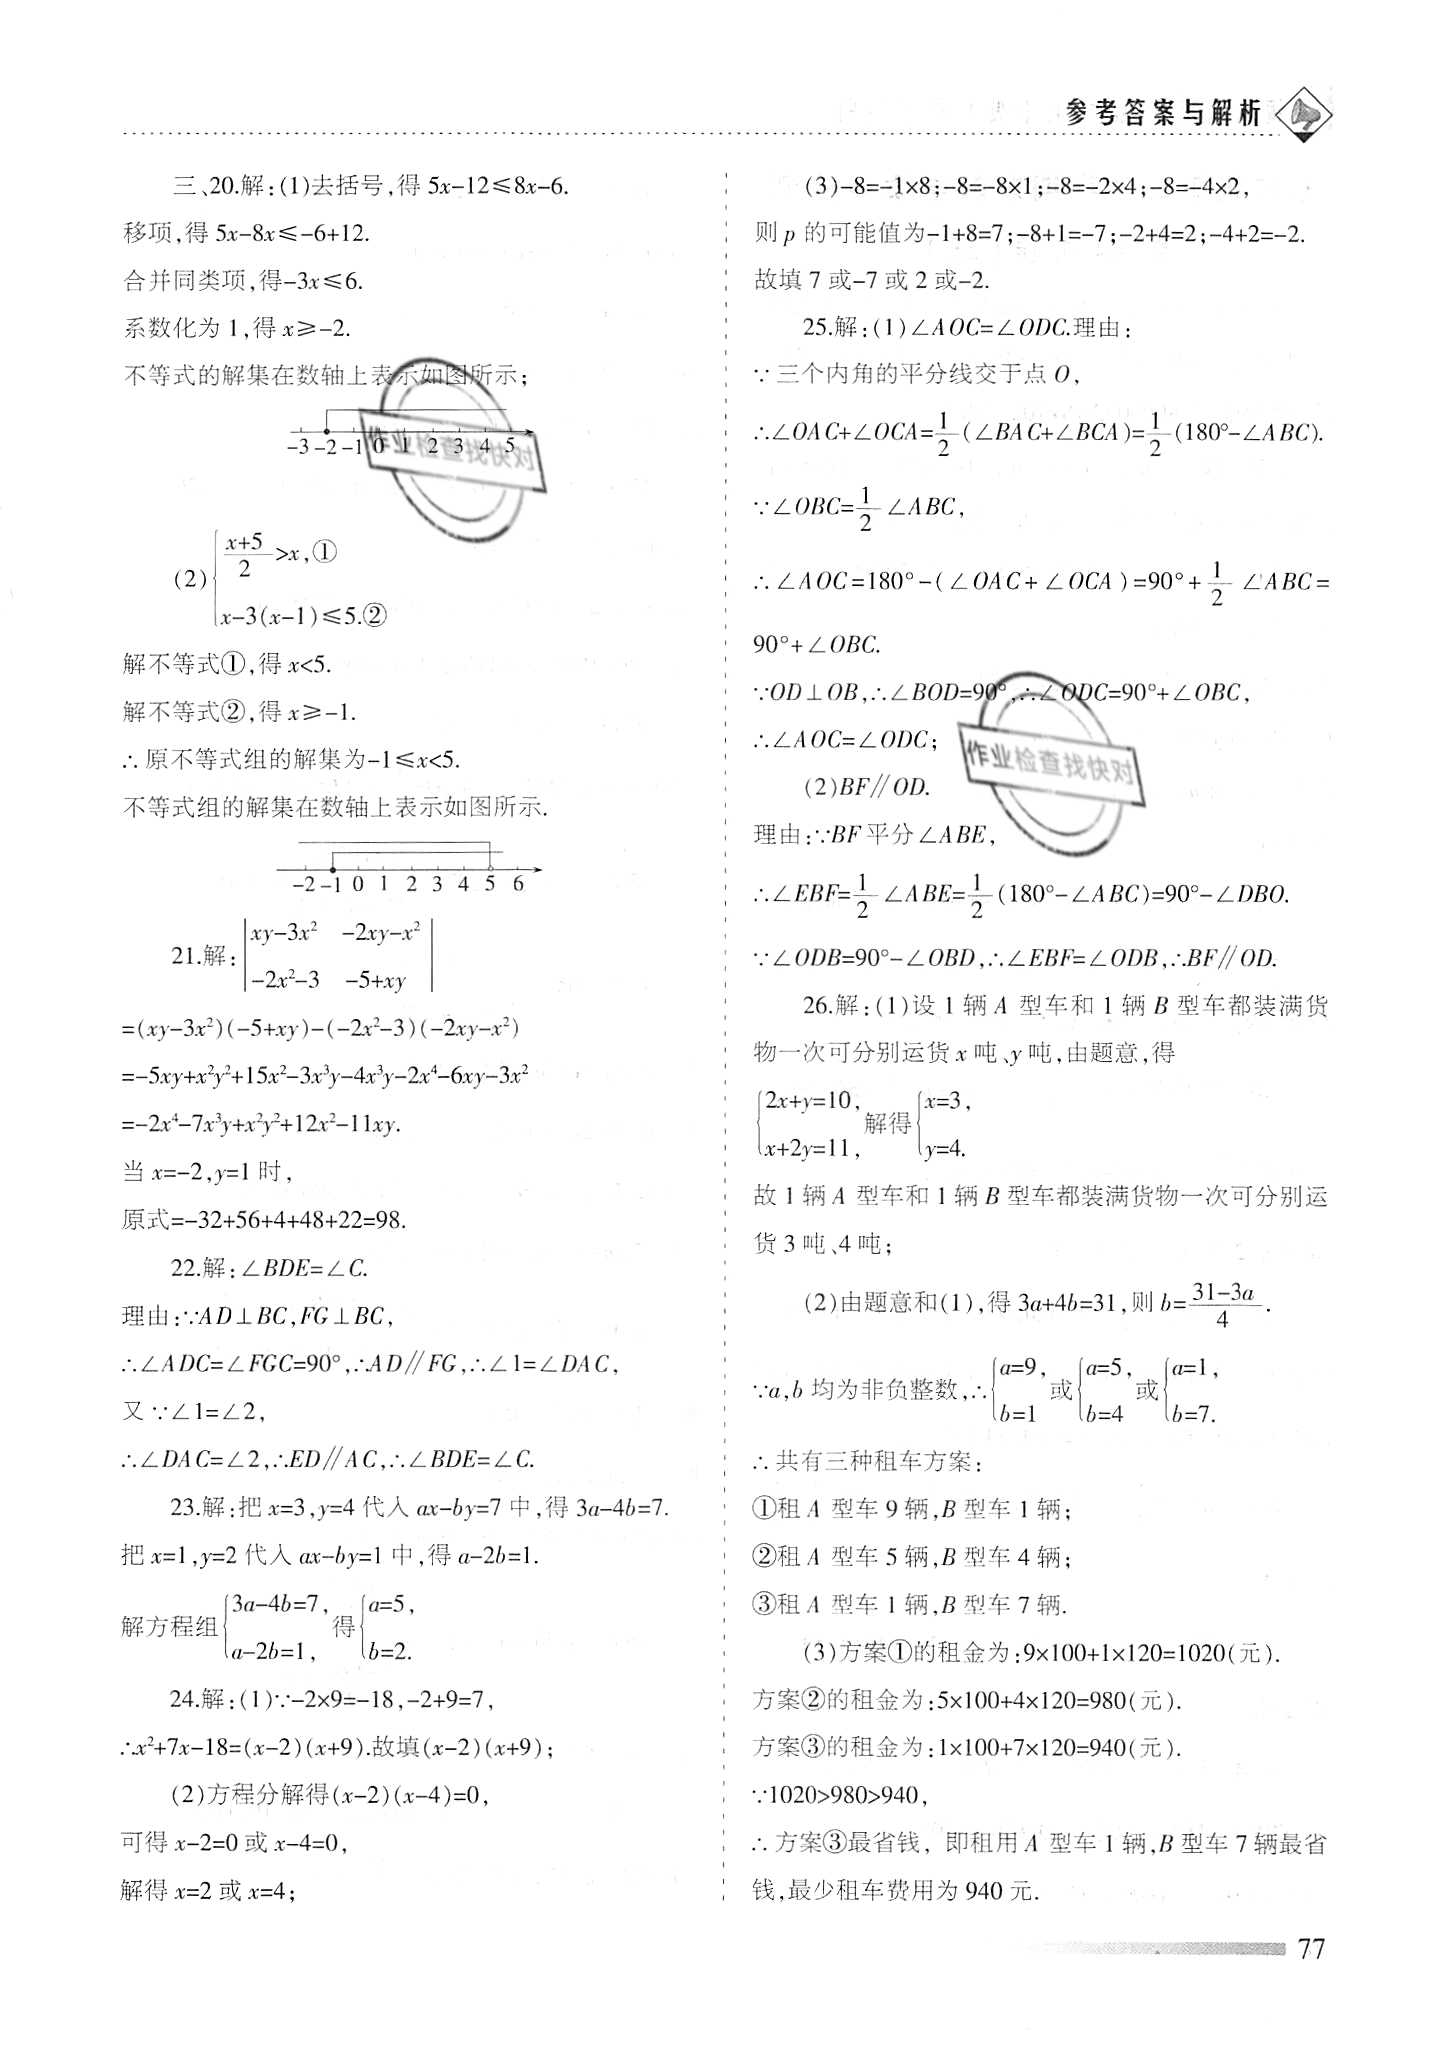 参考答案与解析
三、20.解:(1)去括号,得 5x-12≤8x-6.
移项,得 5x-8x≤-6+12.
合并同类项,得-3x≤6.
系数化为 1,得 x≥-2.
不等式的解集在数轴上表示如图所示;
-3 -2 -1 0 1 2 3 4 5
作业检查找快对
(2){(x+5)/2>x,①
x-3(x-1)≤5.②
解不等式①,得 x<5.
解不等式②,得 x≥-1.
∴原不等式组的解集为-1≤x<5.
不等式组的解集在数轴上表示如图所示.
-2 -1 0 1 2 3 4 5 6
21.解:|xy-3x² -2xy-x²|
|-2x²-3 -5+xy|
=(xy-3x²)(-5+xy)-(-2x²-3)(-2xy-x²)
=-5xy+x²y²+15x²-3x³y-4x³y-2x⁴-6xy-3x²
=-2x⁴-7x³y+x²y²+12x²-11xy.
当 x=-2,y=1 时,
原式=-32+56+4+48+22=98.
22.解:∠BDE=∠C.
理由:∵AD⊥BC,FG⊥BC,
∴∠ADC=∠FGC=90°,∴AD∥FG,∴∠1=∠DAC,
又∵∠1=∠2,
∴∠DAC=∠2,∴ED∥AC,∴∠BDE=∠C.
23.解:把 x=3,y=4 代入 ax-by=7 中,得 3a-4b=7.
把 x=1,y=2 代入 ax-by=1 中,得 a-2b=1.
解方程组{3a-4b=7, a-2b=1, 得{a=5, b=2.
24.解:(1)∵-2×9=-18,-2+9=7,
∴x²+7x-18=(x-2)(x+9).故填(x-2)(x+9);
(2)方程分解得(x-2)(x-4)=0,
可得 x-2=0 或 x-4=0,
解得 x=2 或 x=4;
(3)-8=-1×8;-8=-8×1;-8=-2×4;-8=-4×2,
则 p 的可能值为-1+8=7;-8+1=-7;-2+4=2;-4+2=-2.
故填 7 或-7 或 2 或-2.
25.解:(1)∠AOC=∠ODC.理由:
∵三个内角的平分线交于点 O,
∴∠OAC+∠OCA=1/2(∠BAC+∠BCA)=1/2(180°-∠ABC).
∵∠OBC=1/2∠ABC,
∴∠AOC=180°-(∠OAC+∠OCA)=90°+1/2∠ABC=
90°+∠OBC.
∵OD⊥OB,∴∠BOD=90°,∴∠ODC=90°+∠OBC,
∴∠AOC=∠ODC;
作业检查找快对
(2)BF∥OD.
理由:∵BF平分∠ABE,
∴∠EBF=1/2∠ABE=1/2(180°-∠ABC)=90°-∠DBO.
∵∠ODB=90°-∠OBD,∴∠EBF=∠ODB,∴BF∥OD.
26.解:(1)设 1 辆 A 型车和 1 辆 B 型车都装满货
物一次可分别运货 x 吨、y 吨,由题意,得
{2x+y=10, x+2y=11, 解得{x=3, y=4.
故 1 辆 A 型车和 1 辆 B 型车都装满货物一次可分别运
货 3 吨、4 吨;
(2)由题意和(1),得 3a+4b=31,则 b=(31-3a)/4.
∵a,b 均为非负整数,∴{a=9, b=1 或{a=5, b=4 或{a=1, b=7.
∴共有三种租车方案:
①租 A 型车 9 辆,B 型车 1 辆;
②租 A 型车 5 辆,B 型车 4 辆;
③租 A 型车 1 辆,B 型车 7 辆.
(3)方案①的租金为:9×100+1×120=1020(元).
方案②的租金为:5×100+4×120=980(元).
方案③的租金为:1×100+7×120=940(元).
∵1020>980>940,
∴方案③最省钱,即租用 A 型车 1 辆,B 型车 7 辆最省
钱,最少租车费用为 940 元.
77